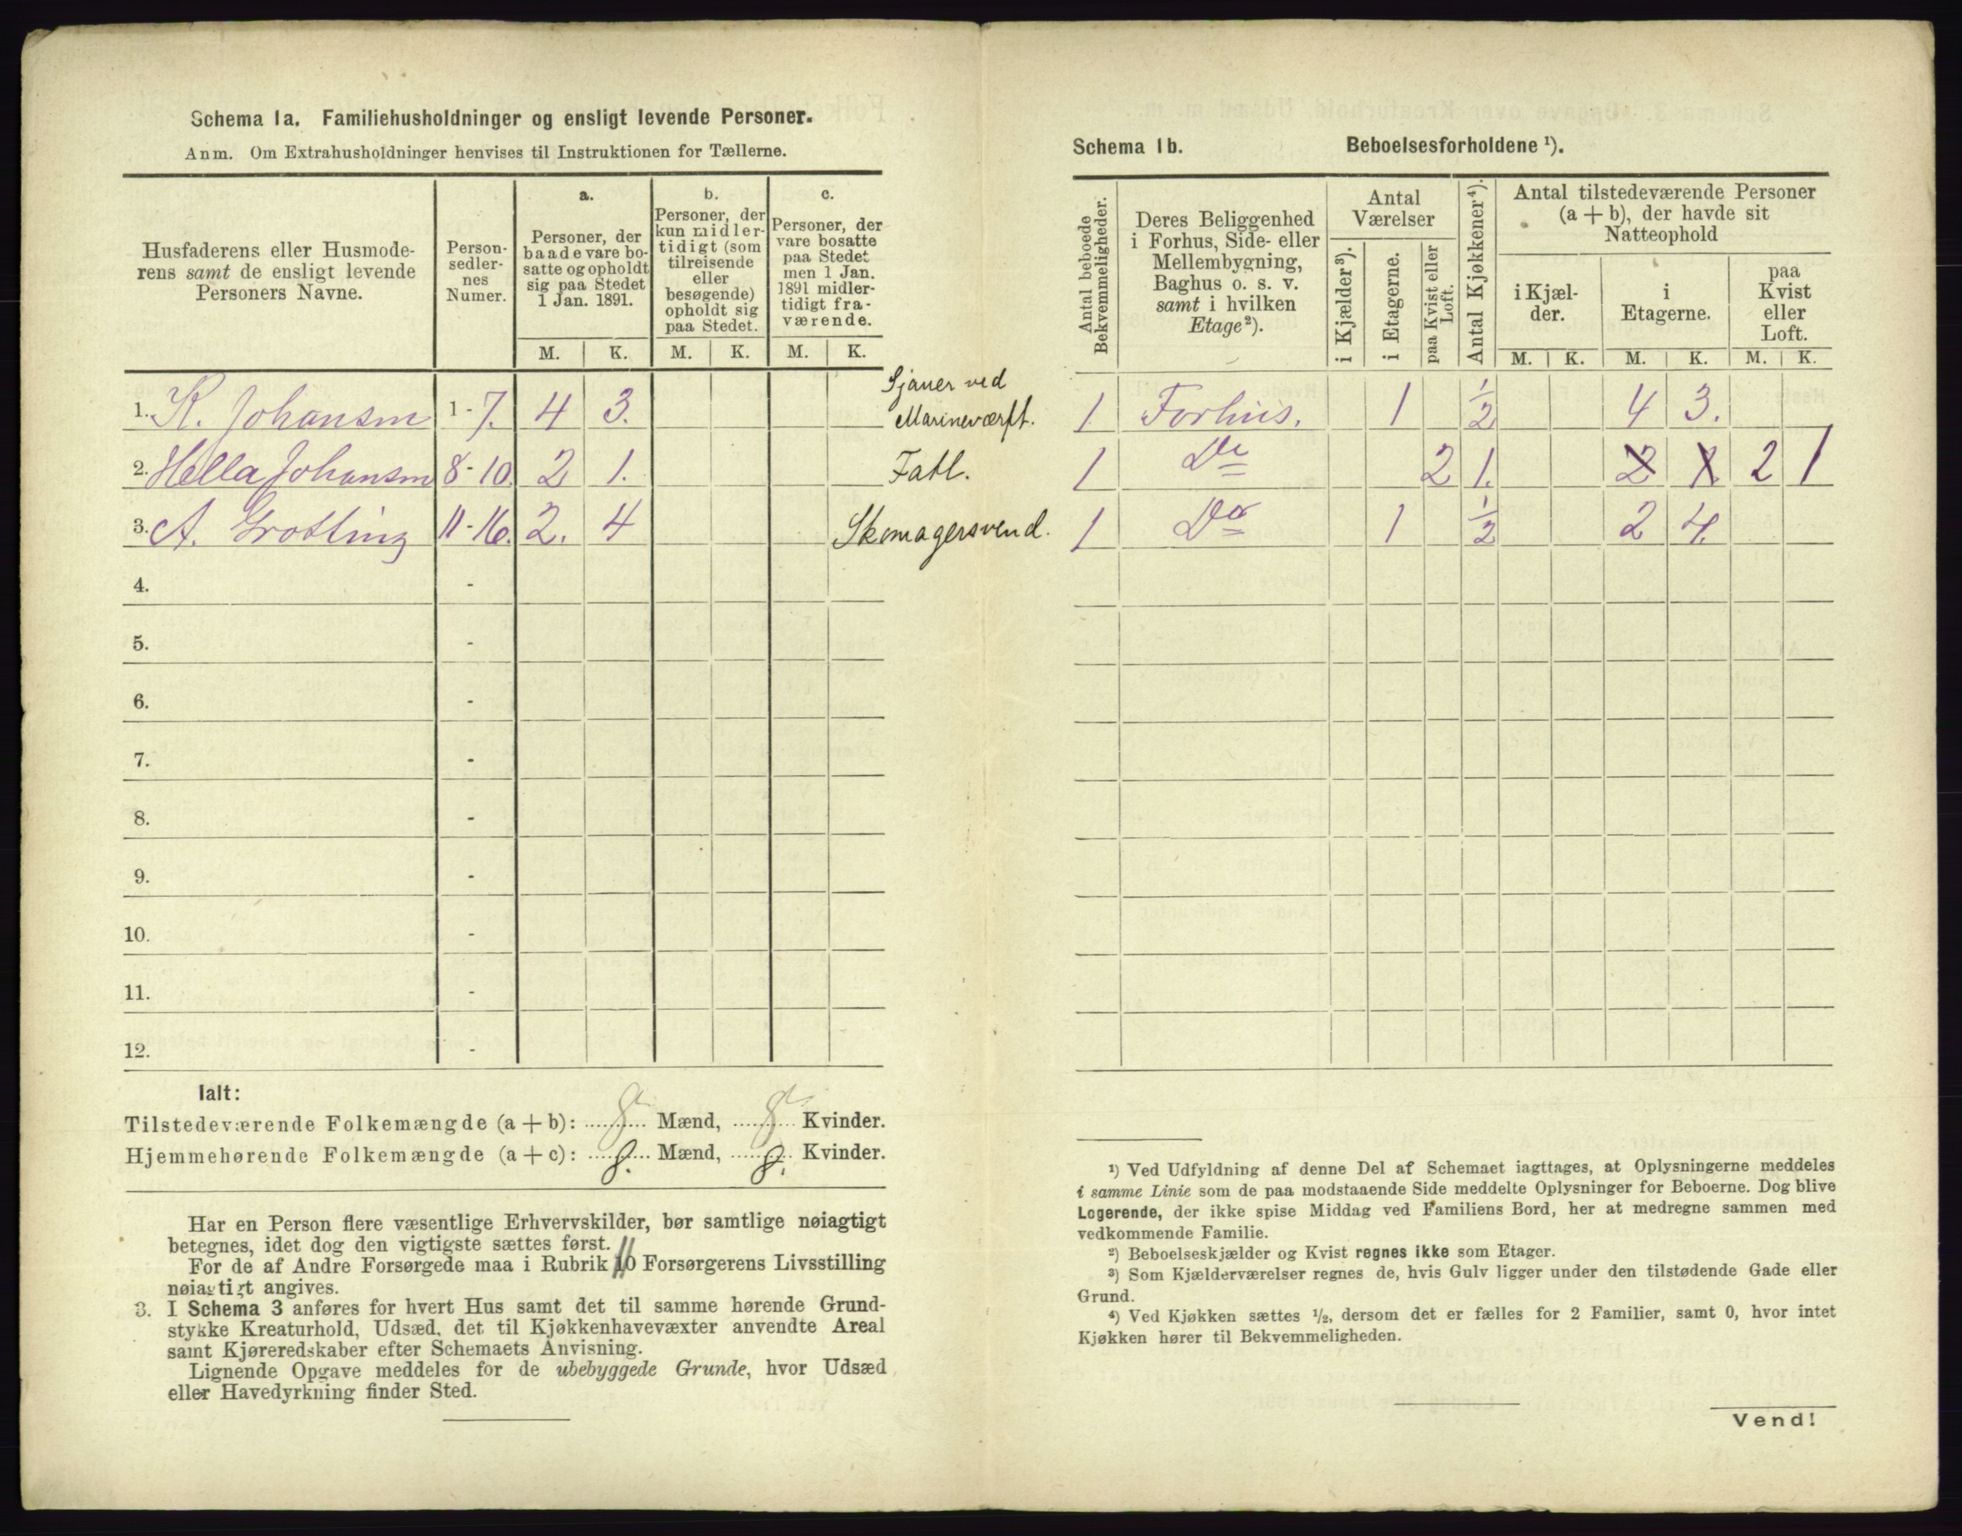 Schema 1a. Familiehusholdninger og ensligt levende Personer.
Anm. Om Extrahusholdninger henvises til Instruktionen for Tællerne.
Husfaderens eller Husmode-
rens samt de ensligt levende
Personers Navne.
Person-
sedler-
nes
Numer.
a.
Personer, der
baade vare bo-
satte og opholdt
sig paa Stedet
1 Jan. 1891.
b.
Personer, der
kun midler-
tidigt (som
tilreisende
eller
besøgende)
opholdt sig
paa Stedet.
c.
Personer, der
vare bosatte
paa Stedet
men 1 Jan.
1891 midler-
tidigt fra-
værende.
M. K. M. K. M. K.
1. K. Johansen 1 - 7. 4 3. Sjauer ved
Marineværft.
2. Hella Johansen 8 - 10. 2 1. Fatl.
3. A. Grotling 11 - 16. 2. 4 Skomagersvend.
4. -
5. -
6. -
7. -
8. -
9. -
10. -
11. -
12. -
Ialt:
Tilstedeværende Folkemængde (a + b): 8 Mænd, 8 Kvinder.
Hjemmehørende Folkemængde (a + c): 8. Mænd, 8. Kvinder.
Har en Person flere væsentlige Erhvervskilder, bør samtlige nøiagtigt
betegnes, idet dog den vigtigste sættes først.
For de af Andre Forsørgede maa i Rubrik 10 11 Forsørgerens Livsstilling
nøiagtigt angives.
3. I Schema 3 anføres for hvert Hus samt det til samme hørende Grund-
stykke Kreaturhold, Udsæd, det til Kjøkkenhavevæxter anvendte Areal
samt Kjøreredskaber efter Schemaets Anvisning.
Lignende Opgave meddeles for de ubebyggede Grunde, hvor Udsæd
eller Havedyrkning finder Sted.
Schema 1b. Beboelsesforholdene ¹).
Antal beboede
Bekvemmeligheder.
Deres Beliggenhed
i Forhus, Side- eller
Mellembygning,
Baghus o. s. v.
samt i hvilken
Etage²).
Antal
Værelser
i Kjælder³).
i Etagerne.
paa Kvist eller
Loft.
Antal Kjøkkener⁴).
Antal tilstedeværende Personer
(a + b), der havde sit
Natteophold
i Kjæl-
der.
i
Etagerne.
paa
Kvist
eller
Loft.
M. K. M. K. M. K.
1 Forhus. 1 ½ 4 3.
1 Do 2 1. 2 1. 2 1
1 Do 1 ½ 2 4.
¹) Ved Udfyldning af denne Del af Schemaet iagttages, at Oplysningerne meddeles
i samme Linie som de paa modstaaende Side meddelte Oplysninger for Beboerne. Dog blive
Logerende, der ikke spise Middag ved Familiens Bord, her at medregne sammen med
vedkommende Familie.
²) Beboelseskjælder og Kvist regnes ikke som Etager.
³) Som Kjælderværelser regnes de, hvis Gulv ligger under den tilstødende Gade eller
Grund.
⁴) Ved Kjøkken sættes ½, dersom det er fælles for 2 Familier, samt 0, hvor intet
Kjøkken hører til Bekvemmeligheden.
Vend!